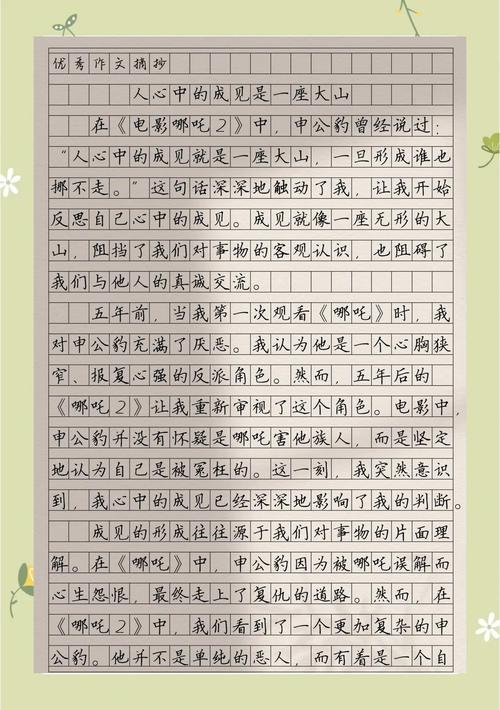 优秀作文摘抄
人心中的成见是一座大山
在《电影哪吒2》中，申公豹曾经说过：
“人心中的成见就是一座大山，一旦形成谁也
挪不走。”这句话深深地触动了我，让我开始
反思自己心中的成见。成见就像一座无形的大
山，阻挡了我们对事物的客观认识，也阻碍了
我们与他人的真诚交流。
五年前，当我第一次观看《哪吒》时，我
对申公豹充满了厌恶。我认为他是一个心胸狭
窄、报复心强的反派角色。然而，五年后的
《哪吒2》让我重新审视了这个角色。电影中，
申公豹并没有怀疑是哪吒害他族人，而是坚定
地认为自己是被冤枉的。这一刻，我突然意识
到，我心中的成见已经深深地影响了我的判断。
成见的形成往往源于我们对事物的片面理
解。在《哪吒》中，申公豹因为被哪吒误解而
心生怨恨，最终走上了复仇的道路。然而，在
《哪吒2》中，我们看到了一个更加复杂的申
公豹。他并不是单纯的恶人，而有着是一个自